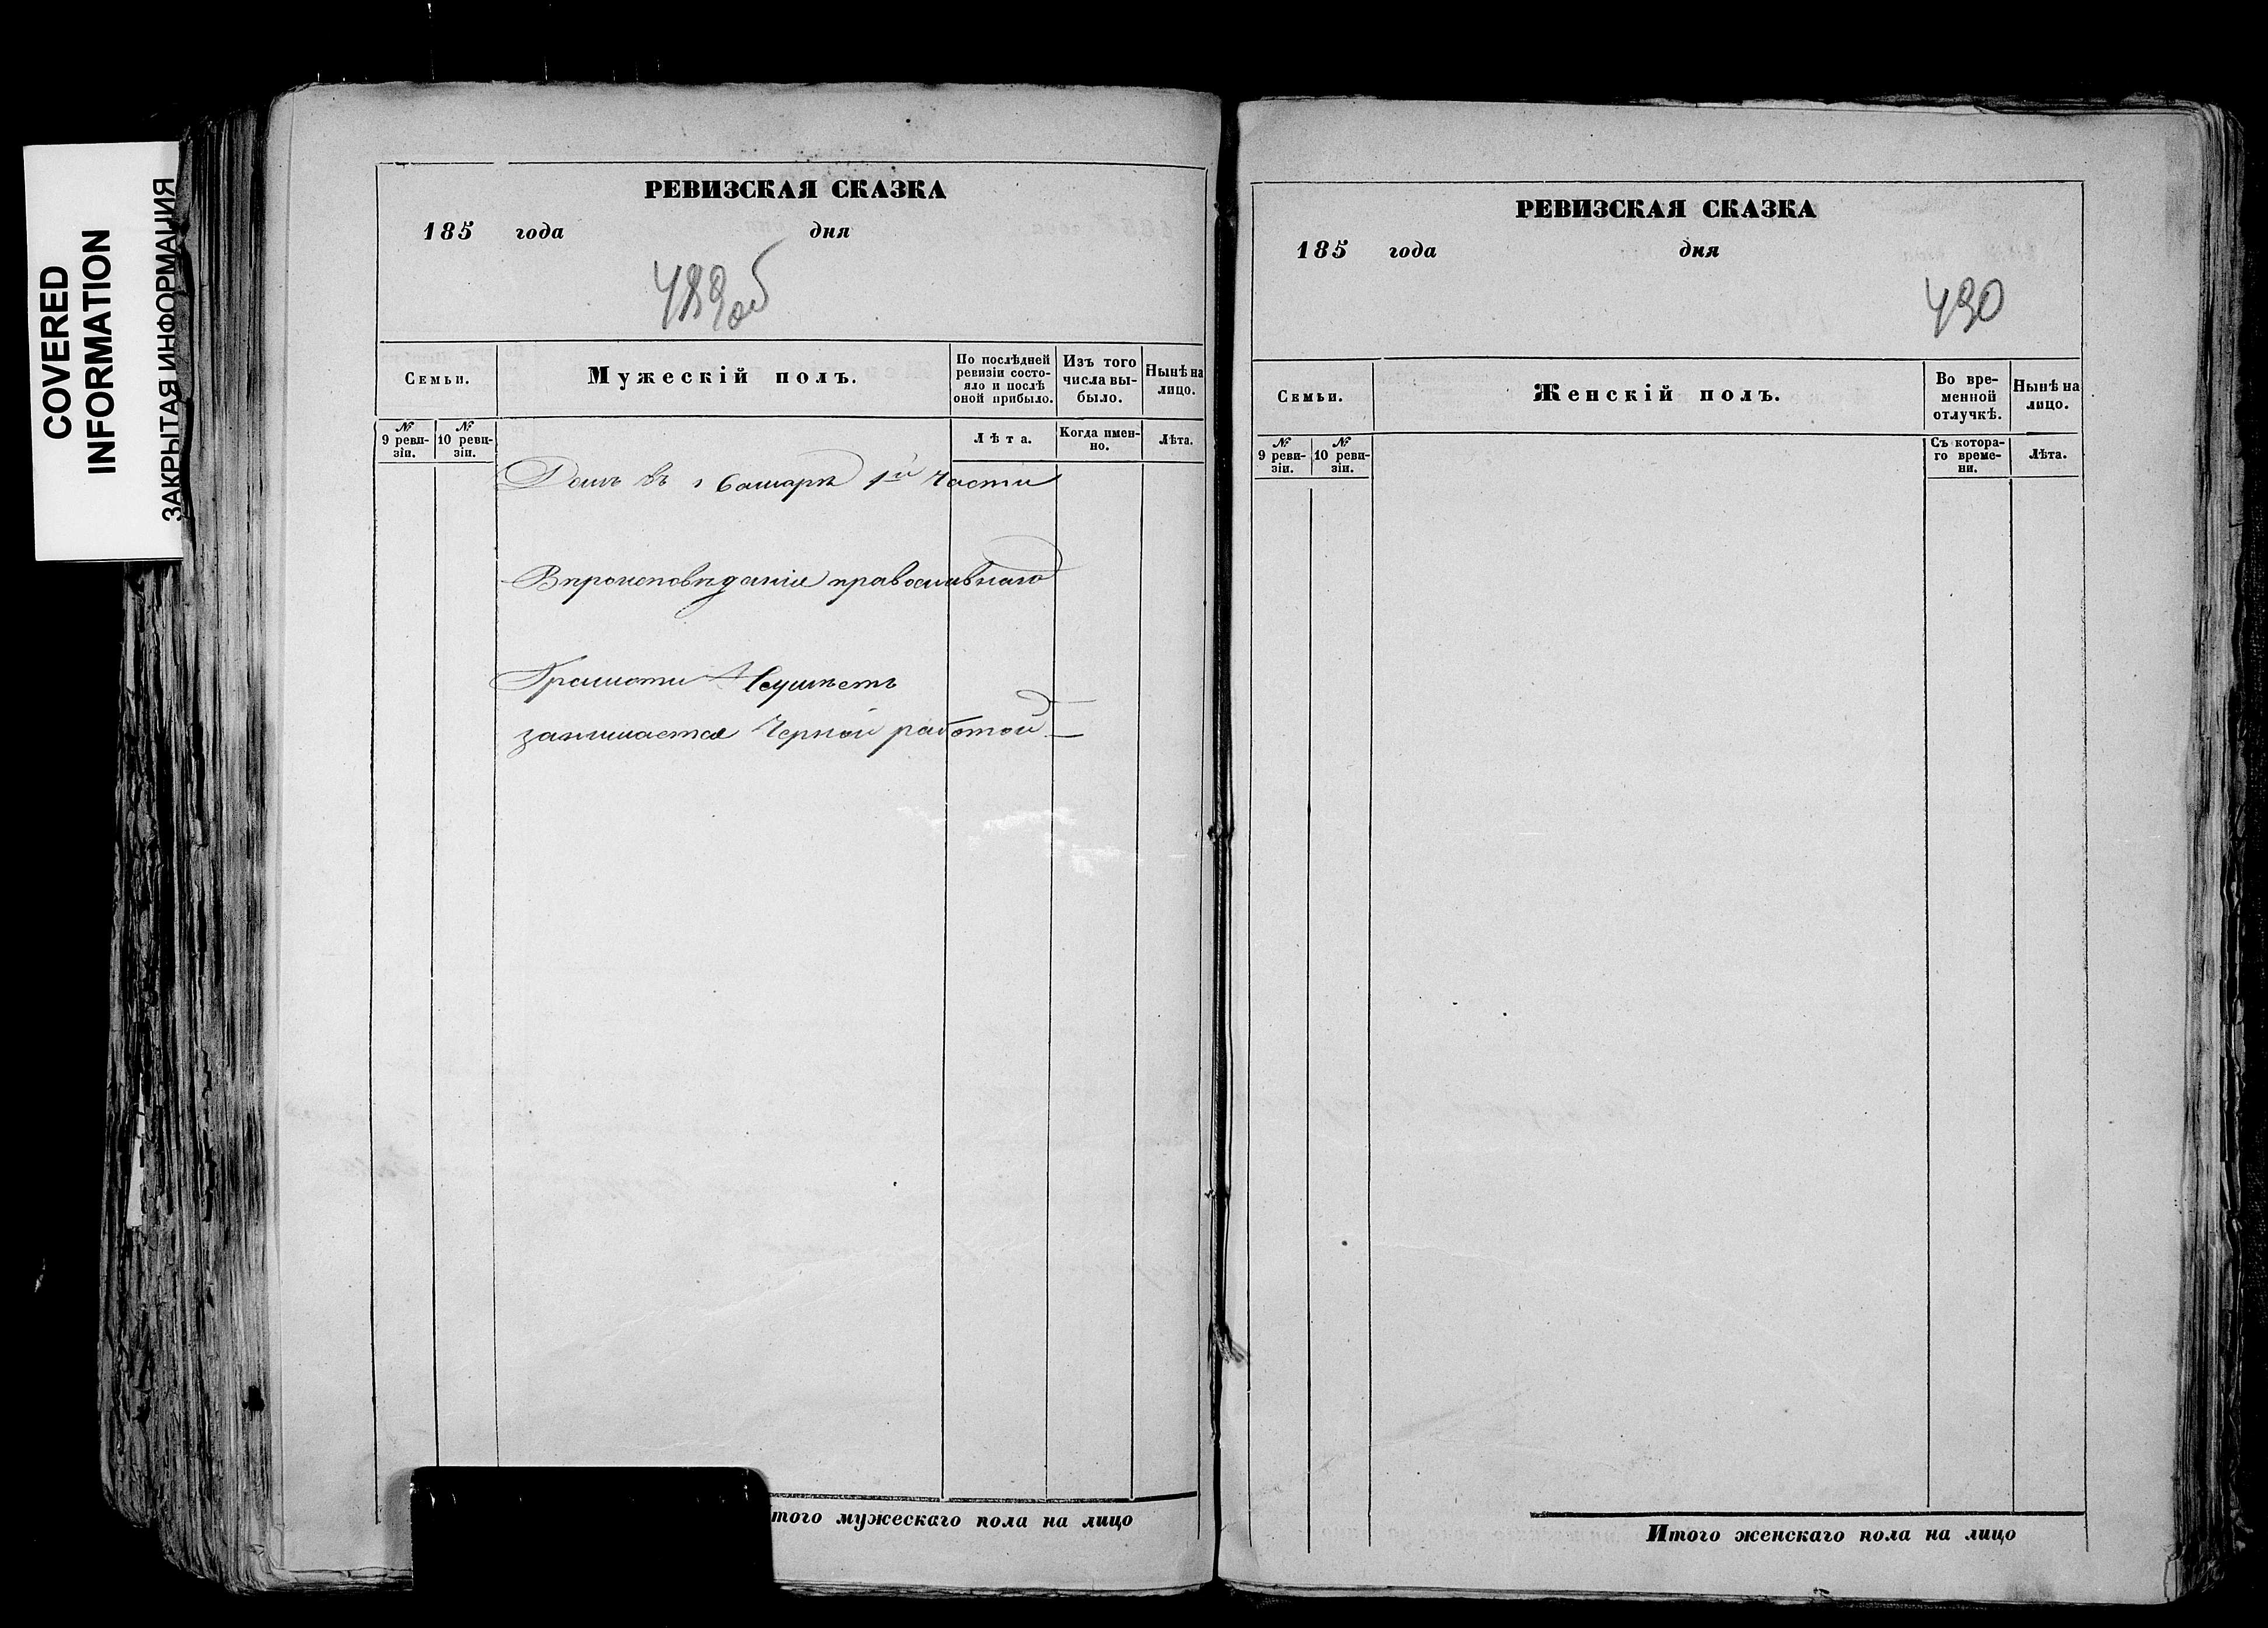 COVERED
INFORMATION
ЗАКРЫТАЯ ИНФОРМАЦИЯ
РЕВИЗСКАЯ СКАЗКА
185 года дня
489об
Семьи.
Мужескій полъ.
По послѣдней
ревизіи состо-
яло и послѣ
оной прибыло.
Изъ того
числа вы-
было.
Нынѣ на
лицо.
№
9 реви-
зіи.
№
10 реви-
зіи.
Лѣта.
Когда имен-
но.
Лѣта.
Домъ въ г Самарѣ 1й части
Вѣроисповѣданіе православнаго
Грамоти Неумѣетъ
занимается Черной работой
того мужескаго пола на лицо
РЕВИЗСКАЯ СКАЗКА
185 года дня
490
Семьи.
Женскій полъ.
Во вре-
менной
отлучкѣ.
Нынѣ на
лицо.
№
9 реви-
зіи.
№
10 реви-
зіи.
Съ котора-
го време-
ни.
Лѣта.
Итого женскаго пола на лицо